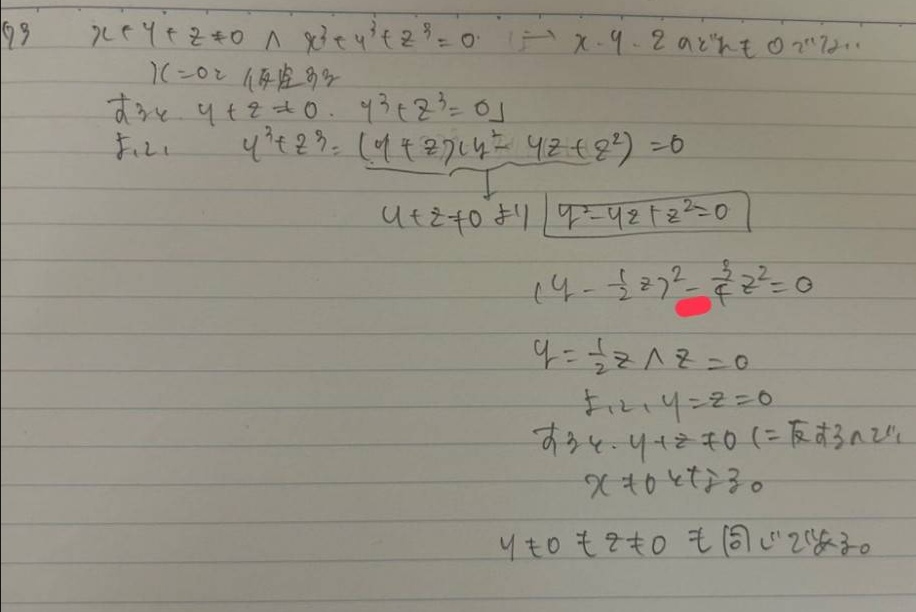 x+y+z≠0 ∧ x³+y³+z³=0 ⇒ x・y・zのどれも0でない
x=0と仮定する
すると、y+z≠0、y³+z³=0」
よって、 y³+z³=(y+z)(y²-yz+z²)=0
y+z≠0より y²-yz+z²=0
(y-1/2z)²-3/4z²=0
y=1/2z∧z=0
よって、y=z=0
すると、y+z≠0に反するので、
x≠0となる。
y≠0もz≠0も同じである。